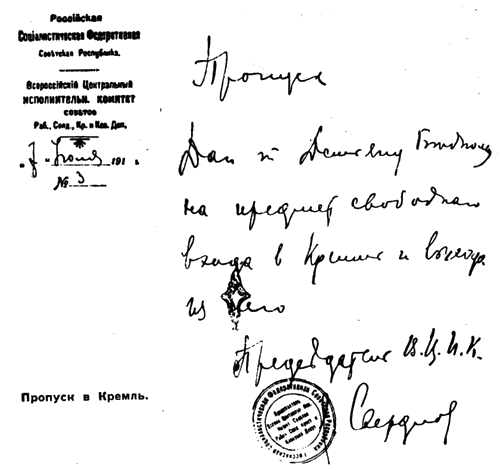 Россiйская
Соцiалистическая Федеративная
Совѣтская Республика.
Всероссiйскiй Центральный
ИСПОЛНИТЕЛЬН. КОМИТЕТ
СОВЕТОВ
Раб., Солд., Кр. и Каз. Деп.
"7" Июня 191 г.
№ 3
Пропуск
Дан т. Демьяну Бедному
на предмет свободнаго
входа в Кремль и выхода
из него
Председатель В.Ц.И.К.
Свердлов
Пропуск в Кремль.